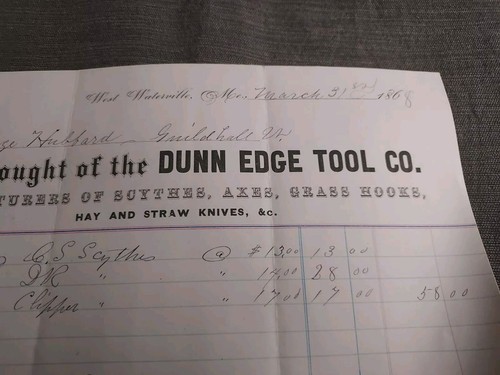 West Waterville, Me. March 31st 1868
ge Hubbard Guildhall Vt.
ought of the DUNN EDGE TOOL CO.
TURERS OF SCYTHES, AXES, GRASS HOOKS,
HAY AND STRAW KNIVES, &c.
C.S Scythes @ $13.00 13 00
" 14.00 28 00
Clipper " " 17.00 17 00 58 00